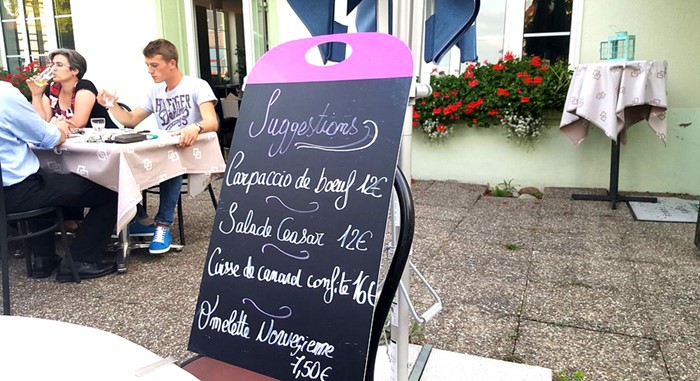 Suggestions
Carpaccio de boeuf 12€
Salade Ceasar 12€
Cuisse de canard confite 16€
Omelette Norvegienne
7,50€
HILFIGER
Denim